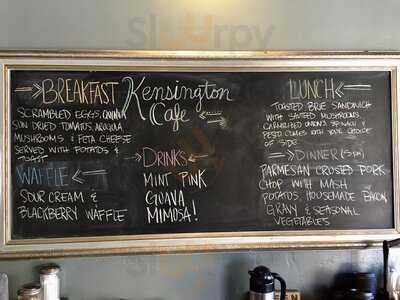 Kensington
Cafe
BREAKFAST
SCRAMBLED EGGS, QUINOA
SUN DRIED TOMATOS, ARUGULA
MUSHROOMS & FETA CHEESE
SERVED WITH POTATOS &
TOAST
WAFFLE
SOUR CREAM &
BLACKBERRY WAFFLE
DRINKS
MINT PINK
GUAVA
MIMOSA!
LUNCH
TOASTED BRIE SANDWICH
WITH SAUTEED MUSHROOMS,
CARAMELIZED ONIONS, SPINACH &
PESTO COMES WITH YOUR CHOICE
OF SIDE
DINNER (5pm)
PARMESAN CRUSTED PORK
CHOP WITH MASH
POTATOS, HOUSEMADE BACON
GRAVY & SEASONAL
VEGETABLES